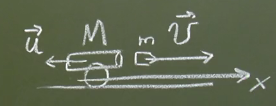 u⃗ M m v⃗
x